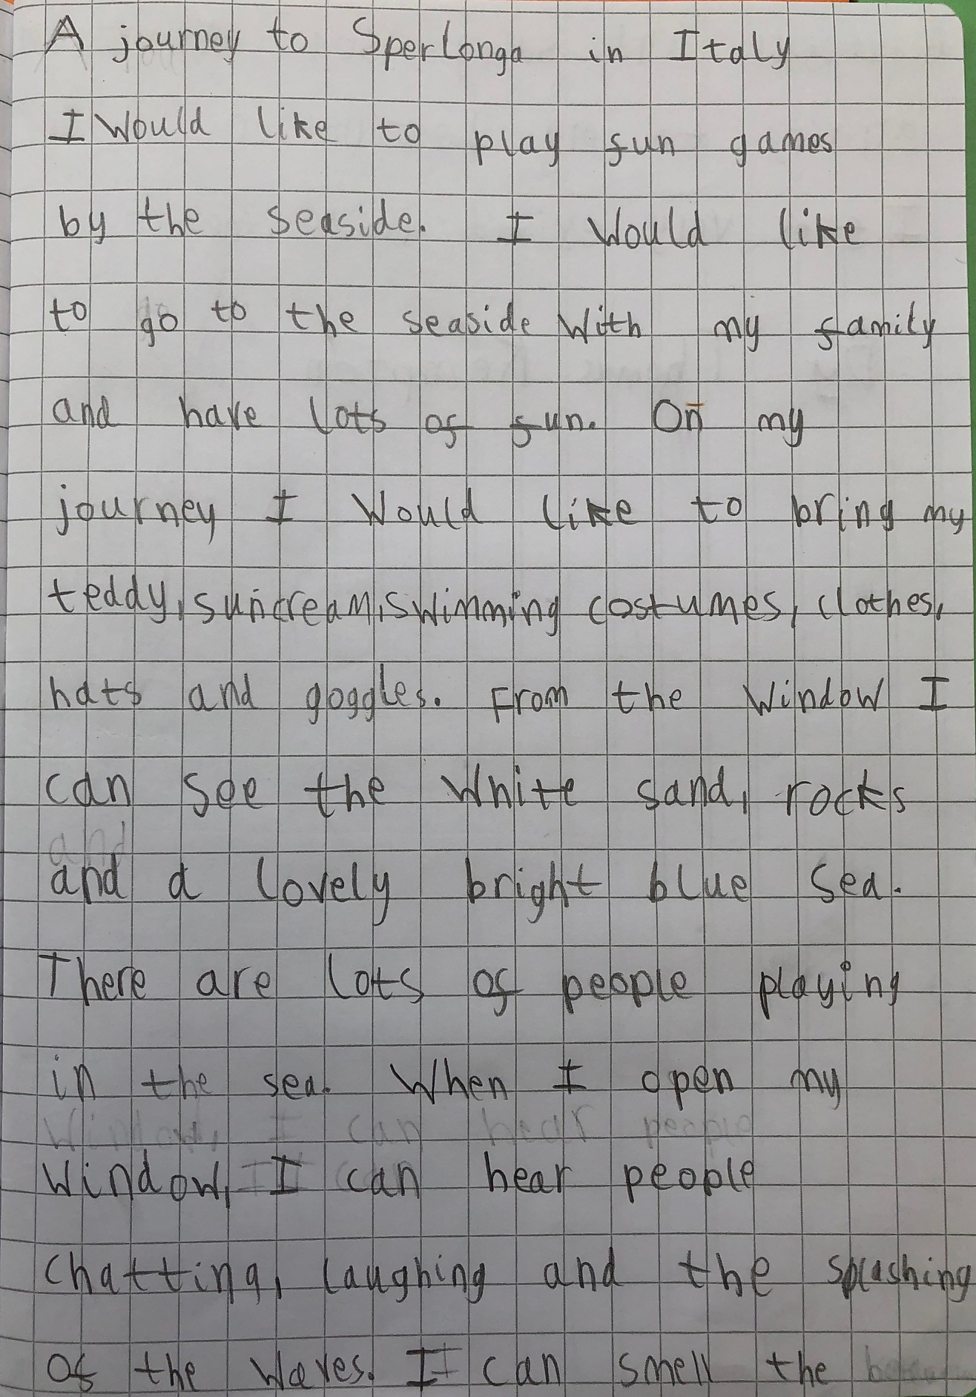 A journey to Sperlonga in Italy
I would like to play fun games
by the seaside. I would like
to go to the seaside with my family
and have lots of fun. On my
journey I would like to bring my
teddy, suncream, swimming costumes, clothes,
hats and goggles. From the window I
can see the white sand, rocks
and a lovely bright blue sea.
There are lots of people playing
in the sea. When I open my
window, I can hear people
chatting, laughing and the splashing
of the waves. I can smell the